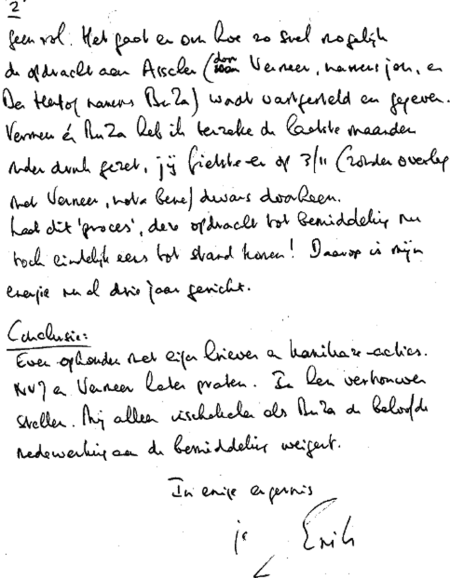 2
geen rol. Het gaat er om hoe zo snel mogelijk
de opdracht aan Asscher (door Vermeer, namens jou, en
Den Hertog namens BuZa) wordt vastgesteld en gegeven.
Vermeer én BuZa heb ik terzake de laatste maanden
onder druk gezet, jij fietste er op 3/11 (zonder overleg
met Vermeer, nota bene) dwars doorheen.
Laat dit 'proces', deze opdracht tot bemiddeling nu
toch eindelijk eens tot stand komen! Daarop is mijn
energie nu al drie jaar gericht.
Conclusie:
Even ophouden met eigen brieven en kamikaze-acties.
NVJ en Vermeer laten praten. In hen vertrouwen
stellen. Mij alleen inschakelen als BuZa de beloofde
medewerking aan de bemiddeling weigert.
In enige ergernis
je
Erik